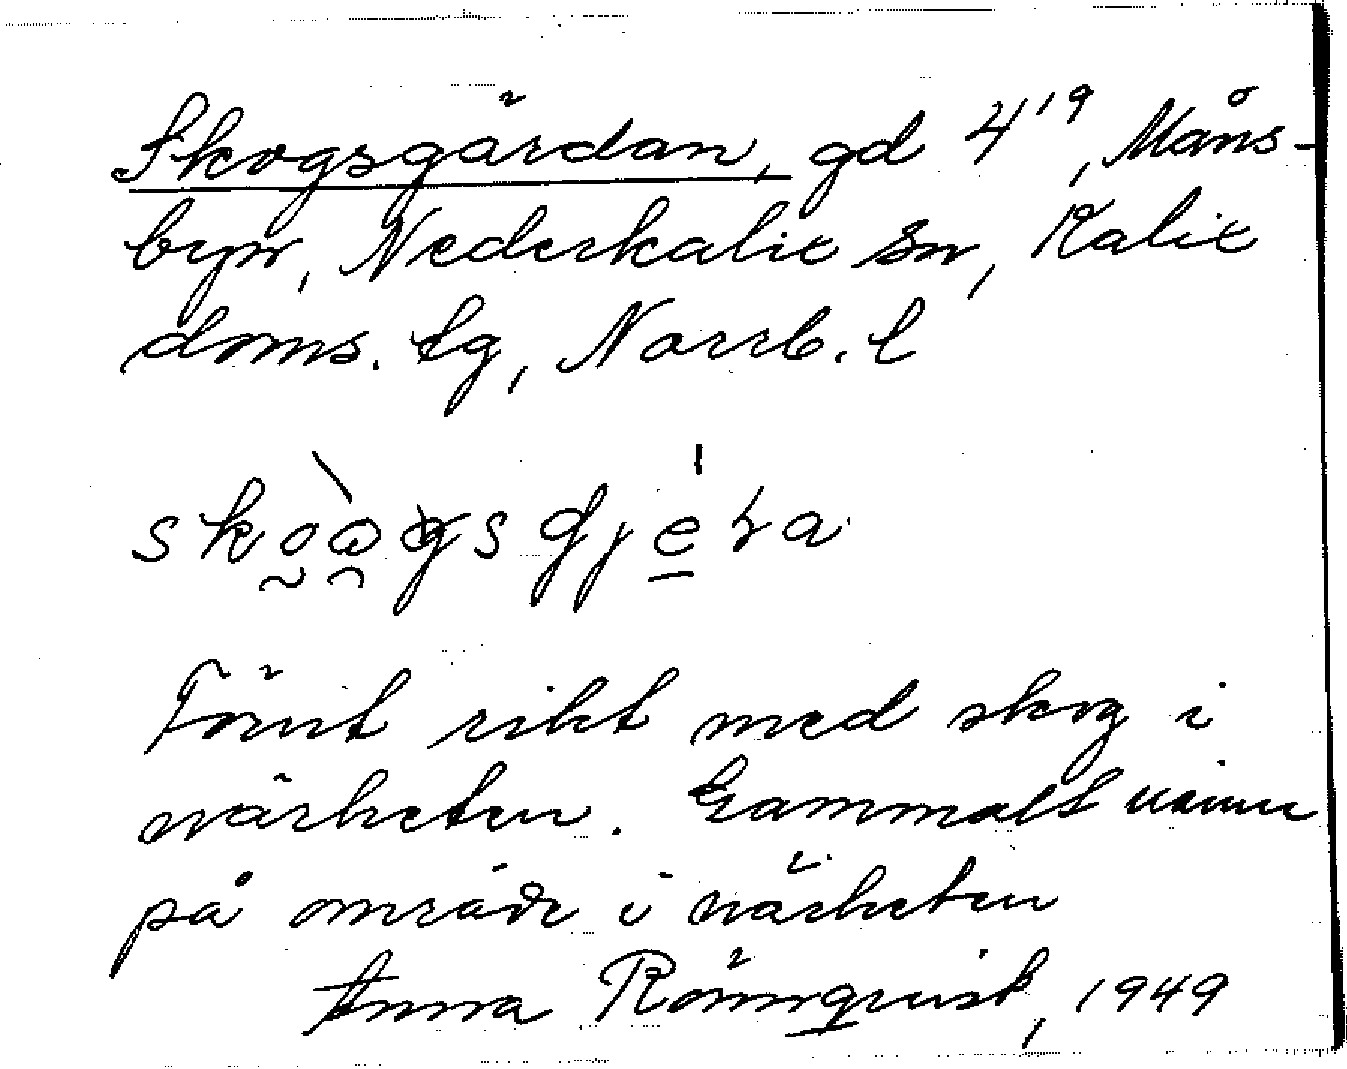 Skogsgärdan, gd 4¹⁹, Måns-
byn, Nederkalix sn, Kalix
doms. tg, Norrb. l
skoògsgjéra
Förut rikt med skog i
närheten. Gammalt namn
på område i närheten
Anna Rönnqvist, 1949